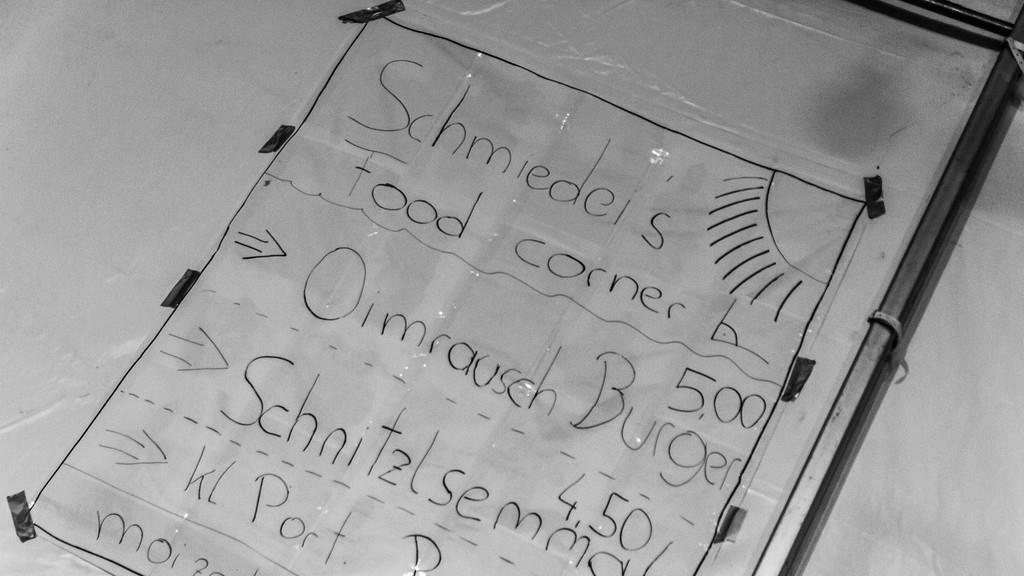 Schmiedel's
food corner
⇒ Oimrausch Burger 5,00
⇒ Schnitzlsemmal 4,50
⇒ kl Port